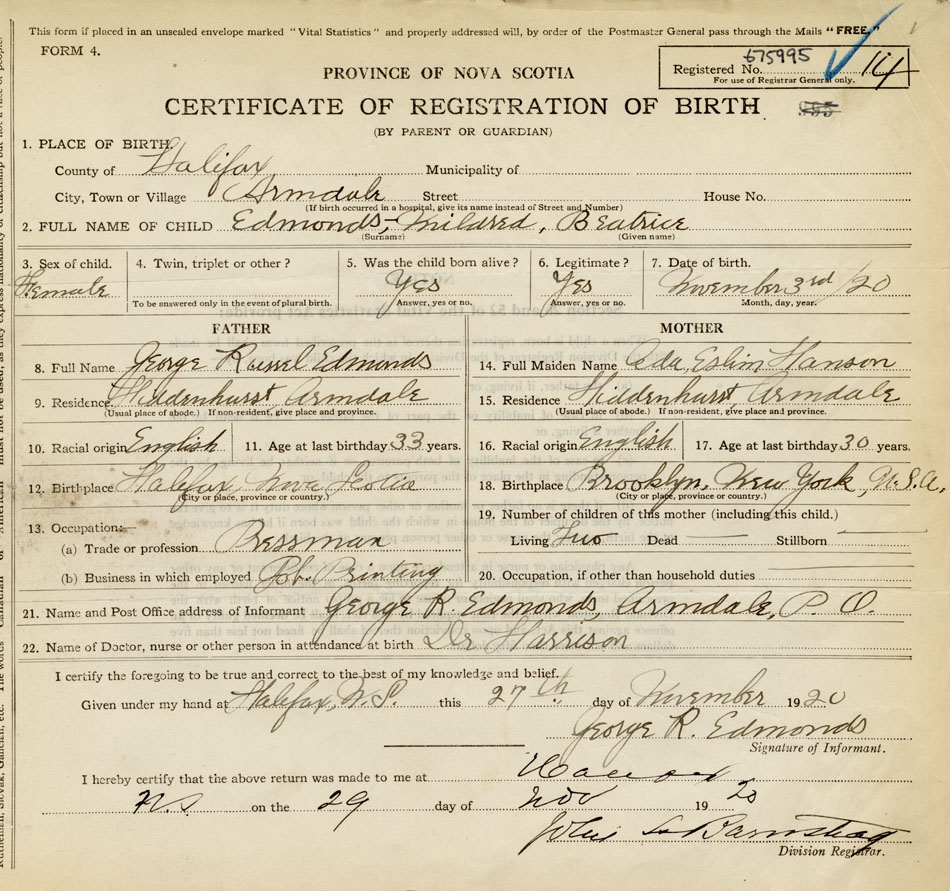 This form if placed in an unsealed envelope marked "Vital Statistics" and properly addressed will, by order of the Postmaster General pass through the Mails "FREE."
FORM 4.
675995
Registered No. 14
For use of Registrar General only.
PROVINCE OF NOVA SCOTIA
CERTIFICATE OF REGISTRATION OF BIRTH
(BY PARENT OR GUARDIAN)
1. PLACE OF BIRTH
County of Halifax Municipality of
City, Town or Village Armdale Street House No.
(If birth occurred in a hospital, give its name instead of Street and Number)
2. FULL NAME OF CHILD Edmonds, Mildred, Beatrice
(Surname) (Given name)
3. Sex of child. 4. Twin, triplet or other? 5. Was the child born alive? 6. Legitimate? 7. Date of birth.
Female Yes Yes November 3rd/20
To be answered only in the event of plural birth. Answer, yes or no. Answer, yes or no. Month, day, year.
FATHER MOTHER
8. Full Name George Russel Edmonds 14. Full Maiden Name Ada Hanson
9. Residence Armdale 15. Residence Armdale
(Usual place of abode.) If non-resident, give place and province. (Usual place of abode.) If non-resident, give place and province.
10. Racial origin English 11. Age at last birthday 33 years. 16. Racial origin English 17. Age at last birthday 30 years.
12. Birthplace Halifax Nova Scotia 18. Birthplace Brooklyn, New York, U.S.A.
(City or place, province or country.) (City or place, province or country.)
13. Occupation:— 19. Number of children of this mother (including this child.)
(a) Trade or profession Pressman Living Two Dead — Stillborn —
(b) Business in which employed Job Printing 20. Occupation, if other than household duties —
21. Name and Post Office address of Informant George R. Edmonds, Armdale, P. O.
22. Name of Doctor, nurse or other person in attendance at birth Dr Harrison
I certify the foregoing to be true and correct to the best of my knowledge and belief.
Given under my hand at Halifax, N.S. this 27th day of November 1920
George R. Edmonds
Signature of Informant.
I hereby certify that the above return was made to me at
N.S on the 29 day of Nov 1920
John
Division Registrar.